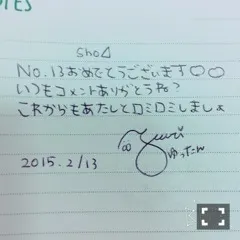 OTES
sho△
No.13おめでとうございます♡♡
いつもコメントありがとうね?
これからもあたしとロミロミしましょ
Yuuri
ゆったん
2015.2/13